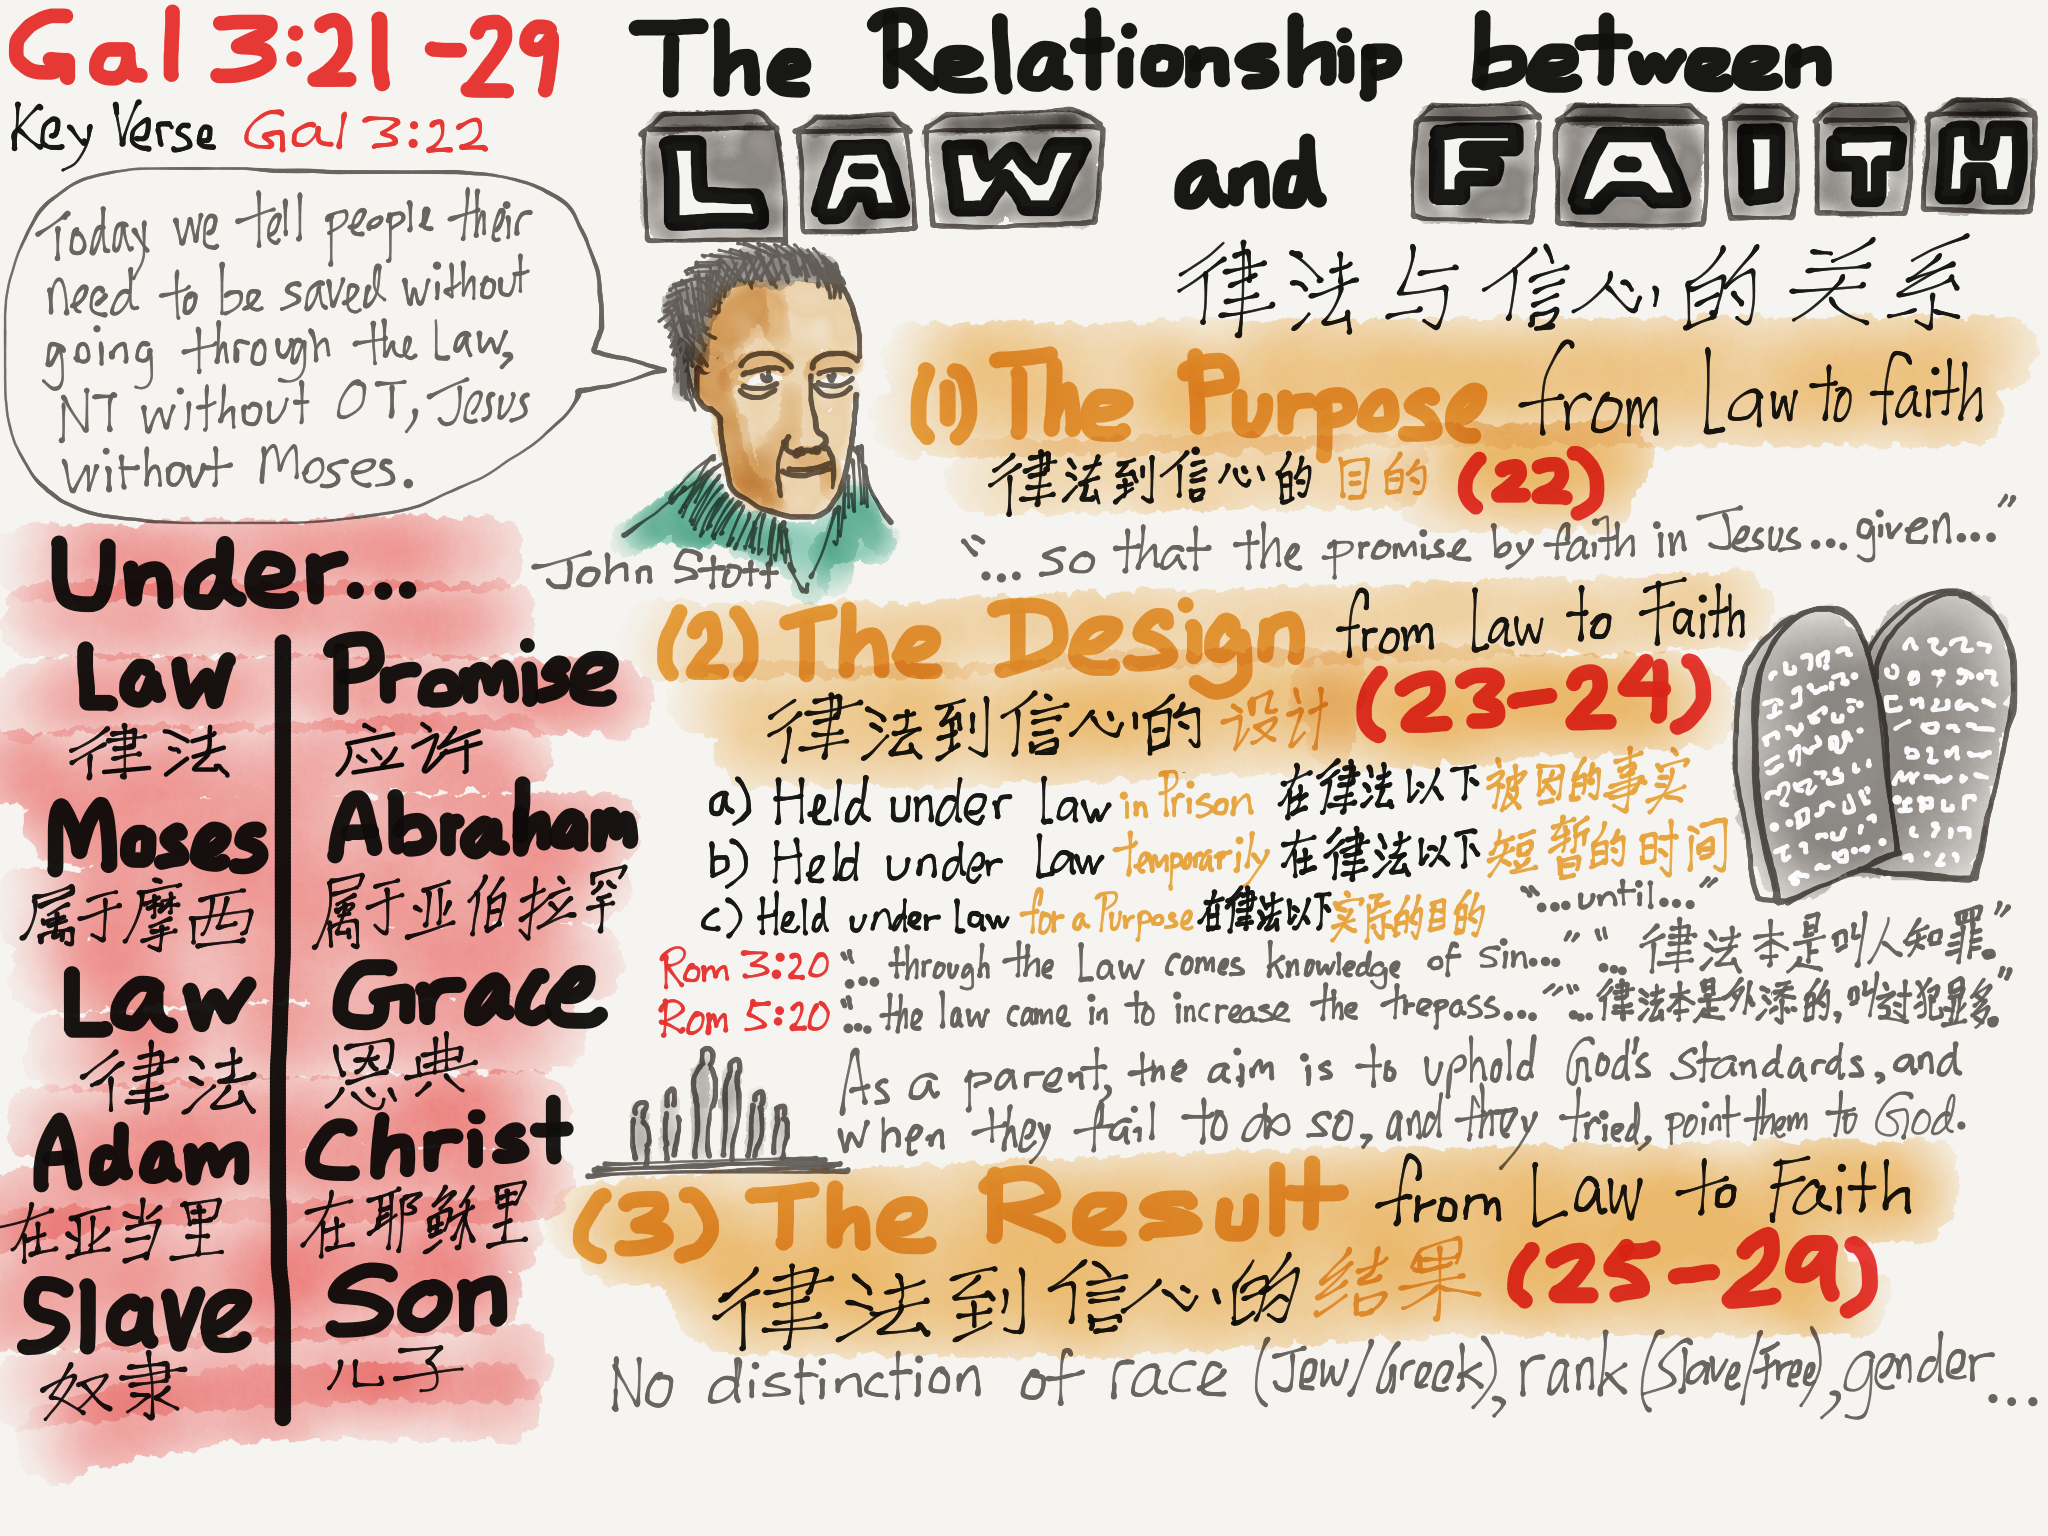 Gal 3:21-29
Key Verse Gal 3:22
The Relationship between
LAW and FAITH
律法与信心的关系
Today we tell people their
need to be saved without
going through the Law,
NT without OT, Jesus
without Moses.
John Stott
Under...
Law Promise
律法 应许
Moses Abraham
属于摩西 属于亚伯拉罕
Law Grace
律法 恩典
Adam Christ
在亚当里 在耶稣里
Slave Son
奴隶 儿子
(1) The Purpose from Law to faith
律法到信心的目的 (22)
"... so that the promise by faith in Jesus... given..."
(2) The Design from Law to Faith
律法到信心的设计 (23-24)
a) Held under Law in Prison 在律法以下被因的事实
b) Held under Law temporarily 在律法以下短暂的时间
c) Held under Law for a Purpose 在律法以下实际的目的
"...until..."
Rom 3:20 "... through the Law comes knowledge of sin..." "... 律法本是叫人知罪."
Rom 5:20 "... the law came in to increase the trepass..." "... 律法本是外添的,叫过犯显多."
As a parent, the aim is to uphold God's standards, and
when they fail to do so, and they tried, point them to God.
(3) The Result from Law to Faith
律法到信心的结果 (25-29)
No distinction of race (Jew/Greek), rank (Slave/Free), gender...